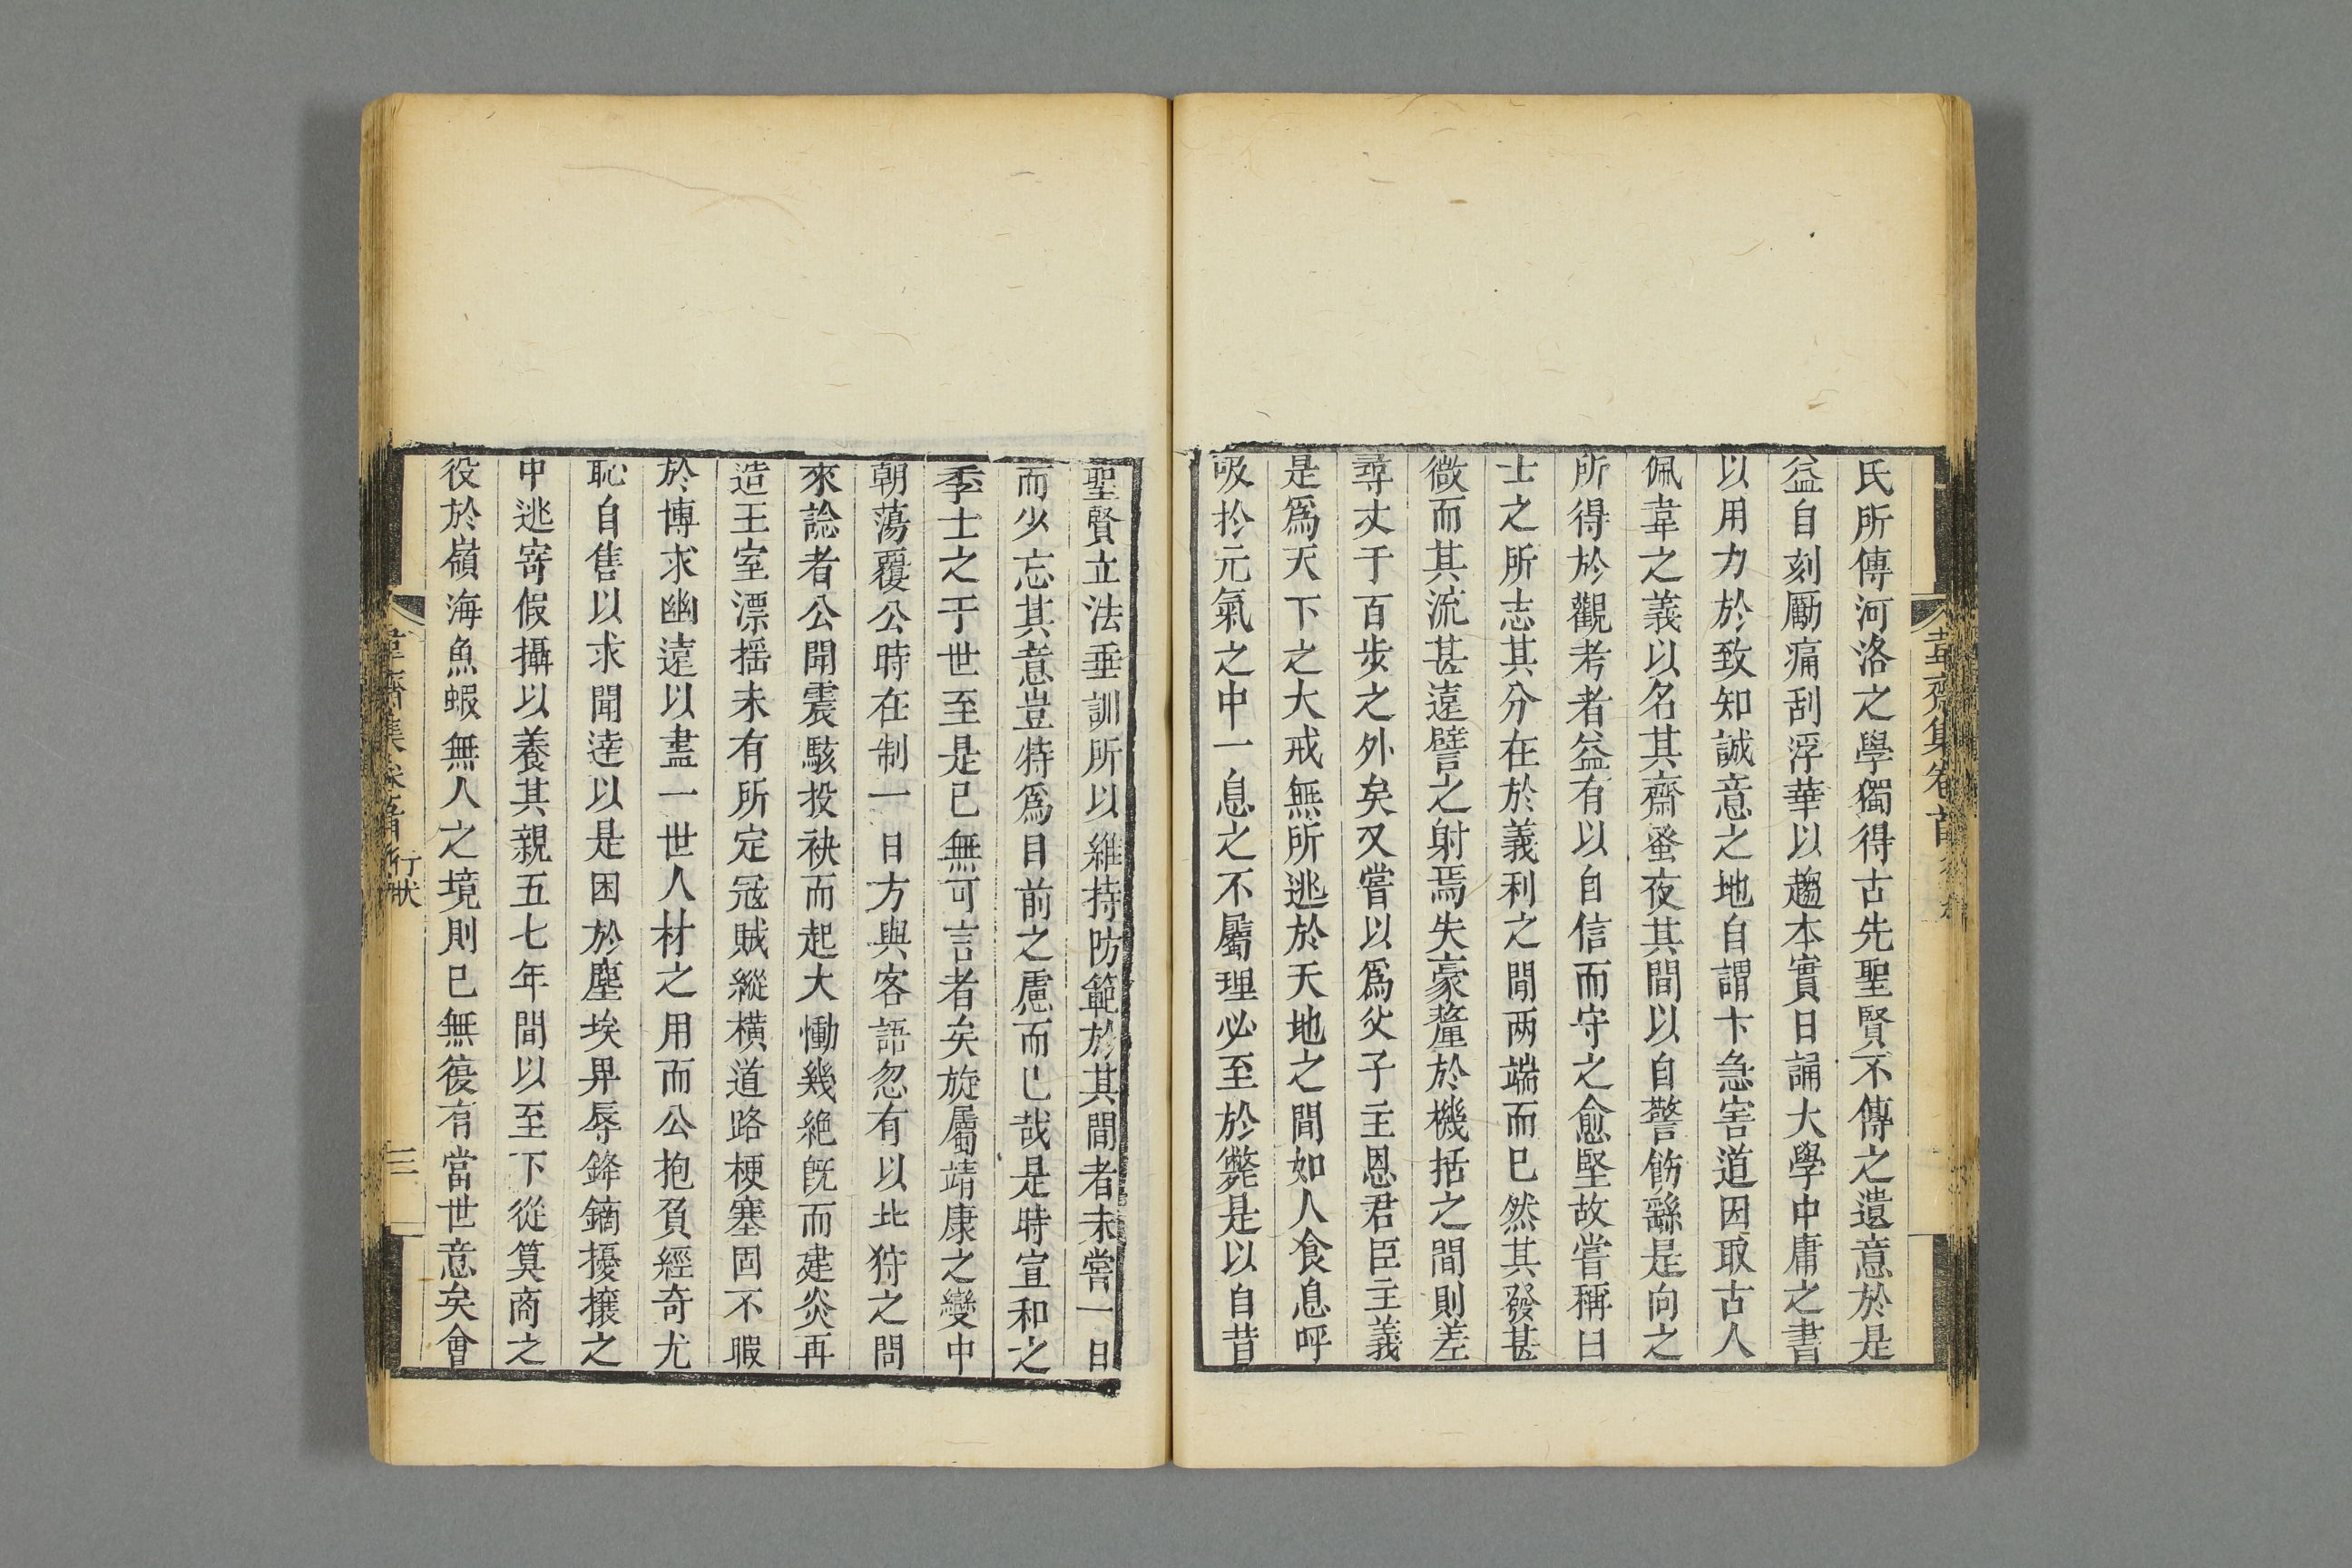 氏所傳河洛之學獨得古先聖賢不傳之遺意於是
益自刻勵痛刮浮華以趨本實日誦大學中庸之書
以用力於致知誠意之地自謂卞急害道因取古人
佩韋之義以名其齋蚤夜其間以自警飭繇是向之
所得於觀考者益有以自信而守之愈堅故嘗稱曰
士之所志其分在於義利之間兩端而已然其發甚
微而其流甚遠譬之射焉失豪釐於機括之間則差
尋丈于百步之外矣又嘗以爲父子主恩君臣主義
是爲天下之大戒無所逃於天地之間如人食息呼
吸扵元氣之中一息之不屬理必至於斃是以自昔
韋齋集卷首
聖賢立法垂訓所以維持防範於其間者未嘗一日
而少忘其意豈特爲目前之慮而已哉是時宣和之
季士之于世至是已無可言者矣旋屬靖康之變中
朝蕩覆公時在制一日方與客語忽有以北狩之問
來諗者公聞震駭投袂而起大慟幾絶旣而建炎再
造王室漂搖未有所定冦賊縱橫道路梗塞固不暇
於博求幽遠以盡一世人材之用而公抱負經奇尤
恥自售以求聞逹以是困於塵埃畀辱鋒鏑擾攘之
中逃寄假攝以養其親五七年間以至下從算商之
役於嶺海魚蝦無人之境則已無復有當世意矣會
韋齋集卷首 行狀 三